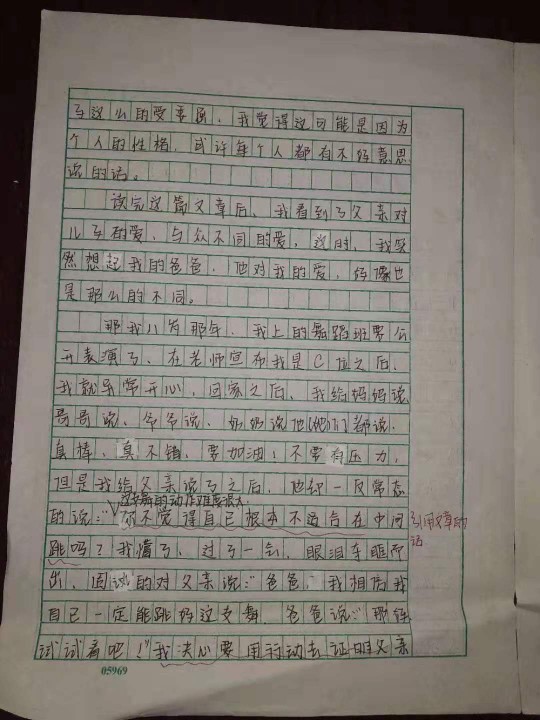 子这么的爱 ，我觉得这可能是因为
个人的性格，或许每个人都有不好意思
说的话。
读完这篇文章后，我看到了父亲对
儿子的爱，与众不同的爱，这时，我突
然想起我的爸爸，他对我的爱，好像也
是那么的不同。
那我八 那年，我上的舞蹈班要公
开表演了，在老师宣布我是C位之后，
我就异常开心，回家之后，我给妈妈说
哥哥说，爷爷说，奶奶说他(她)们都说
真棒、真不错，要加油！不要有压力，
但是我给父亲说了之后，他却一反常态
这支舞的动作难度很大
的说：“你不觉得自己根本不适合在中间
引用文章的
话
跳吗？我懵了，过了一会，眼泪夺眶而
出， 的对父亲说：“爸爸，我相信我
自己一定能跳好这支舞。爸爸说：“那 
试试看吧！”我决心要用行动去证明父亲
05969